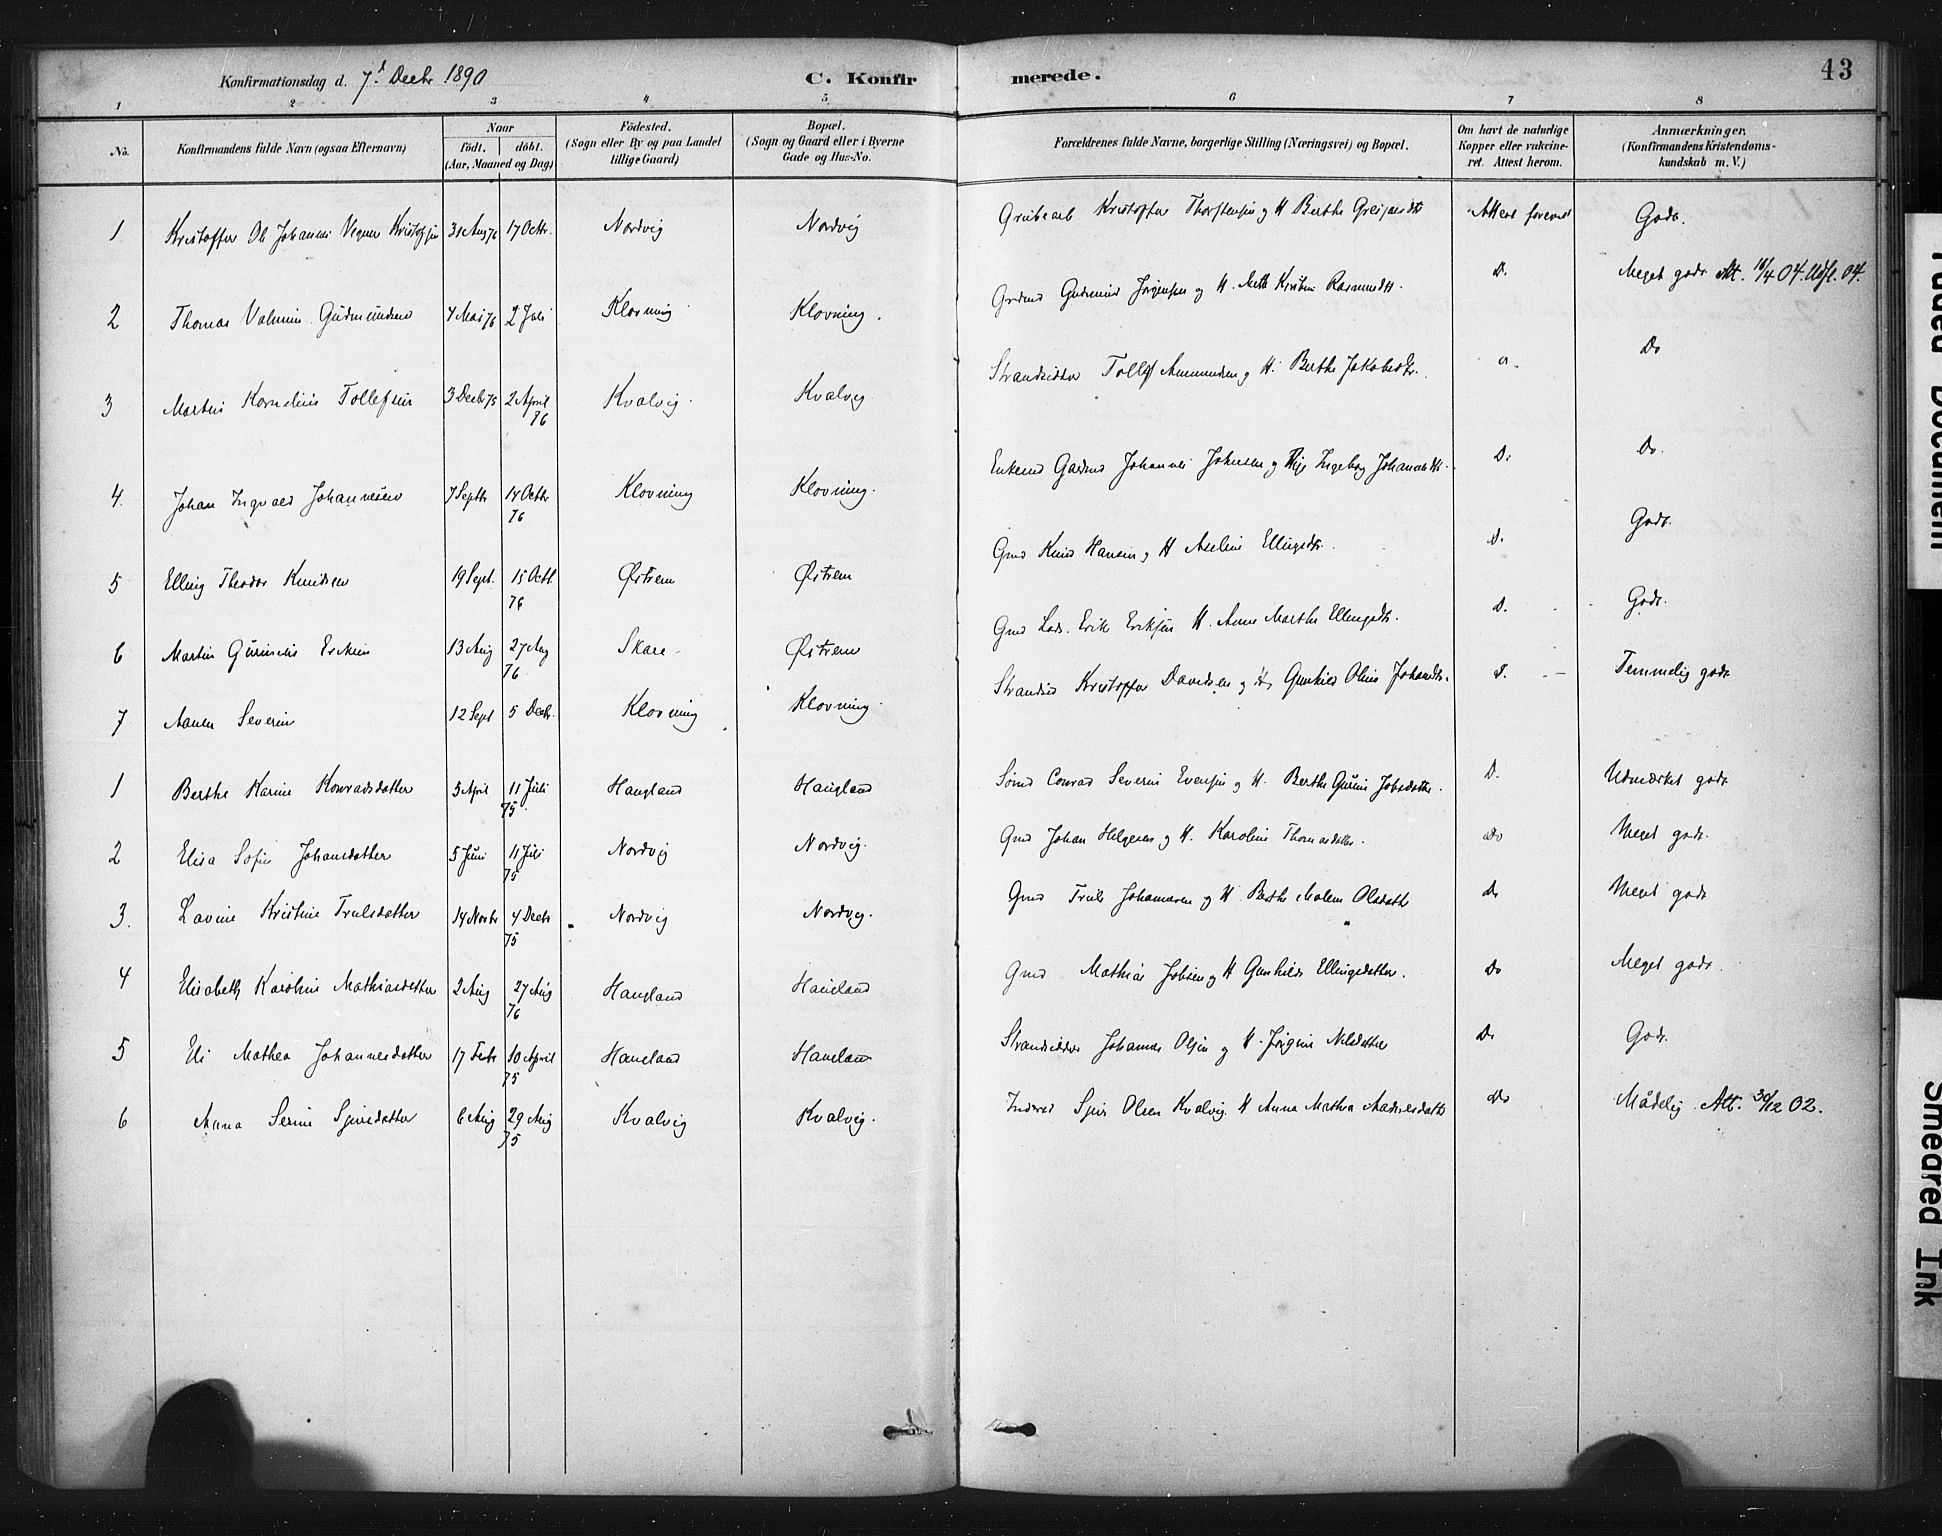 Konfirmationsdag d. 7d Decbr 1890 C. Konfir merede. 43
1 2 3 4 5 6 7 8
No. Konfirmandens fulde Navn (ogsaa Efternavn) Naar födt. döbt. (Aar, Maaned og Dag) Födested. (Sogn eller By og paa Landet tillige Gaard) Bopæl. (Sogn og Gaard eller i Byerne Gade og Hus-No. Forældrenes fulde Navne, borgerlige Stilling (Næringsvei) og Bopæl. Om havt de naturlige Kopper eller vakcineret. Attest herom. Anmærkninger. (Konfirmandens Kristendomskundskab m. V.)
1 Kristoffer Ole Johannes 31 Aug 76 17 Octbr. Nordvig Nordvig Kristoffer Thorstensen og H Berthe Attest forevist Godt.
2 Thomas Gudmundsen 4 Mai 76 2 Juli Klovning Klovning. Gudmund Jørgensen og H. Rasmusdtr D. Meget godt Att. 16/4 04. Udfl. 04.
3 Martin Kornelius Tollefsen 3 Decbr 75 2 April 76 Kvalvig. Kvalvig Strandsidder Tollef Aanundsen og H. Berthe Jakobsdtr. Do
4. Johan Ingvald Johannesen 7 Septbr 14 Octbr 76 Klovning Klovning. Johannes Johnsen og Ingeborg Johannesdtr. D. Do.
5 Elling Theodor Knudsen 19 Sept. 15 Octb 76 Østrem Østrem Gmd Knud Hansen og H Aseline Ellingsdtr. D. Godt.
6 Martin Eriksen 13 Aug 27 Aug 76 Skare Østrem Gmd Lods. Erik Eriksen H. Anne Marthe Ellingsdtr. D. Godt.
7 Aanen Severin 12 Sept 5 Decbr. Klovning Klovning. Kristoffer Davidsen og H Gunhild Oline Johansdtr. D. Temmelig godt
1 Berthe Karine Konradsdatter 5 April 11 Juli 75. Haugland Haugland Conrad Severin Evensen og H. Berthe Gurine Jobsdatter. D. Udmærket godt
2 Elisa Sofie Johansdatter 5 Juni 11 Juli 75 Nordvig Nordvig. Gmd Johan Helgesen og H. Karoline Thomasdatter. Do Meget godt.
3. Lavine Kristine Trulsdatter 14 Novbr 4 Decbr 75 Nordvig Nordvig. Gmd Truls Johannesen og H Berthe Malene Olsdatter Do Meget godt
4 Elisabeth Karoline Mathiasdatter 2 Aug 27 Aug 76 Haugland Haugland Gmd Mathias Jobsen og H Gunhilde Ellingsdatter. Do Meget godt.
5 Eli Mathea Johannesdatter 17 Febr 10 April 75 Haugland Haugland Strandsidder Johannes Olsen og H. Jørgine Nilsdatter D. Godt.
6 Anna Serine Sjursdatter 6 Aug 29 Aug 75 Kvalvig Kvalvig. Inderst Sjur Olsen Kvalvig. H Anna Mathea Do Mådelig. Att. 30/12 02.
Faded Document
Smeared Ink